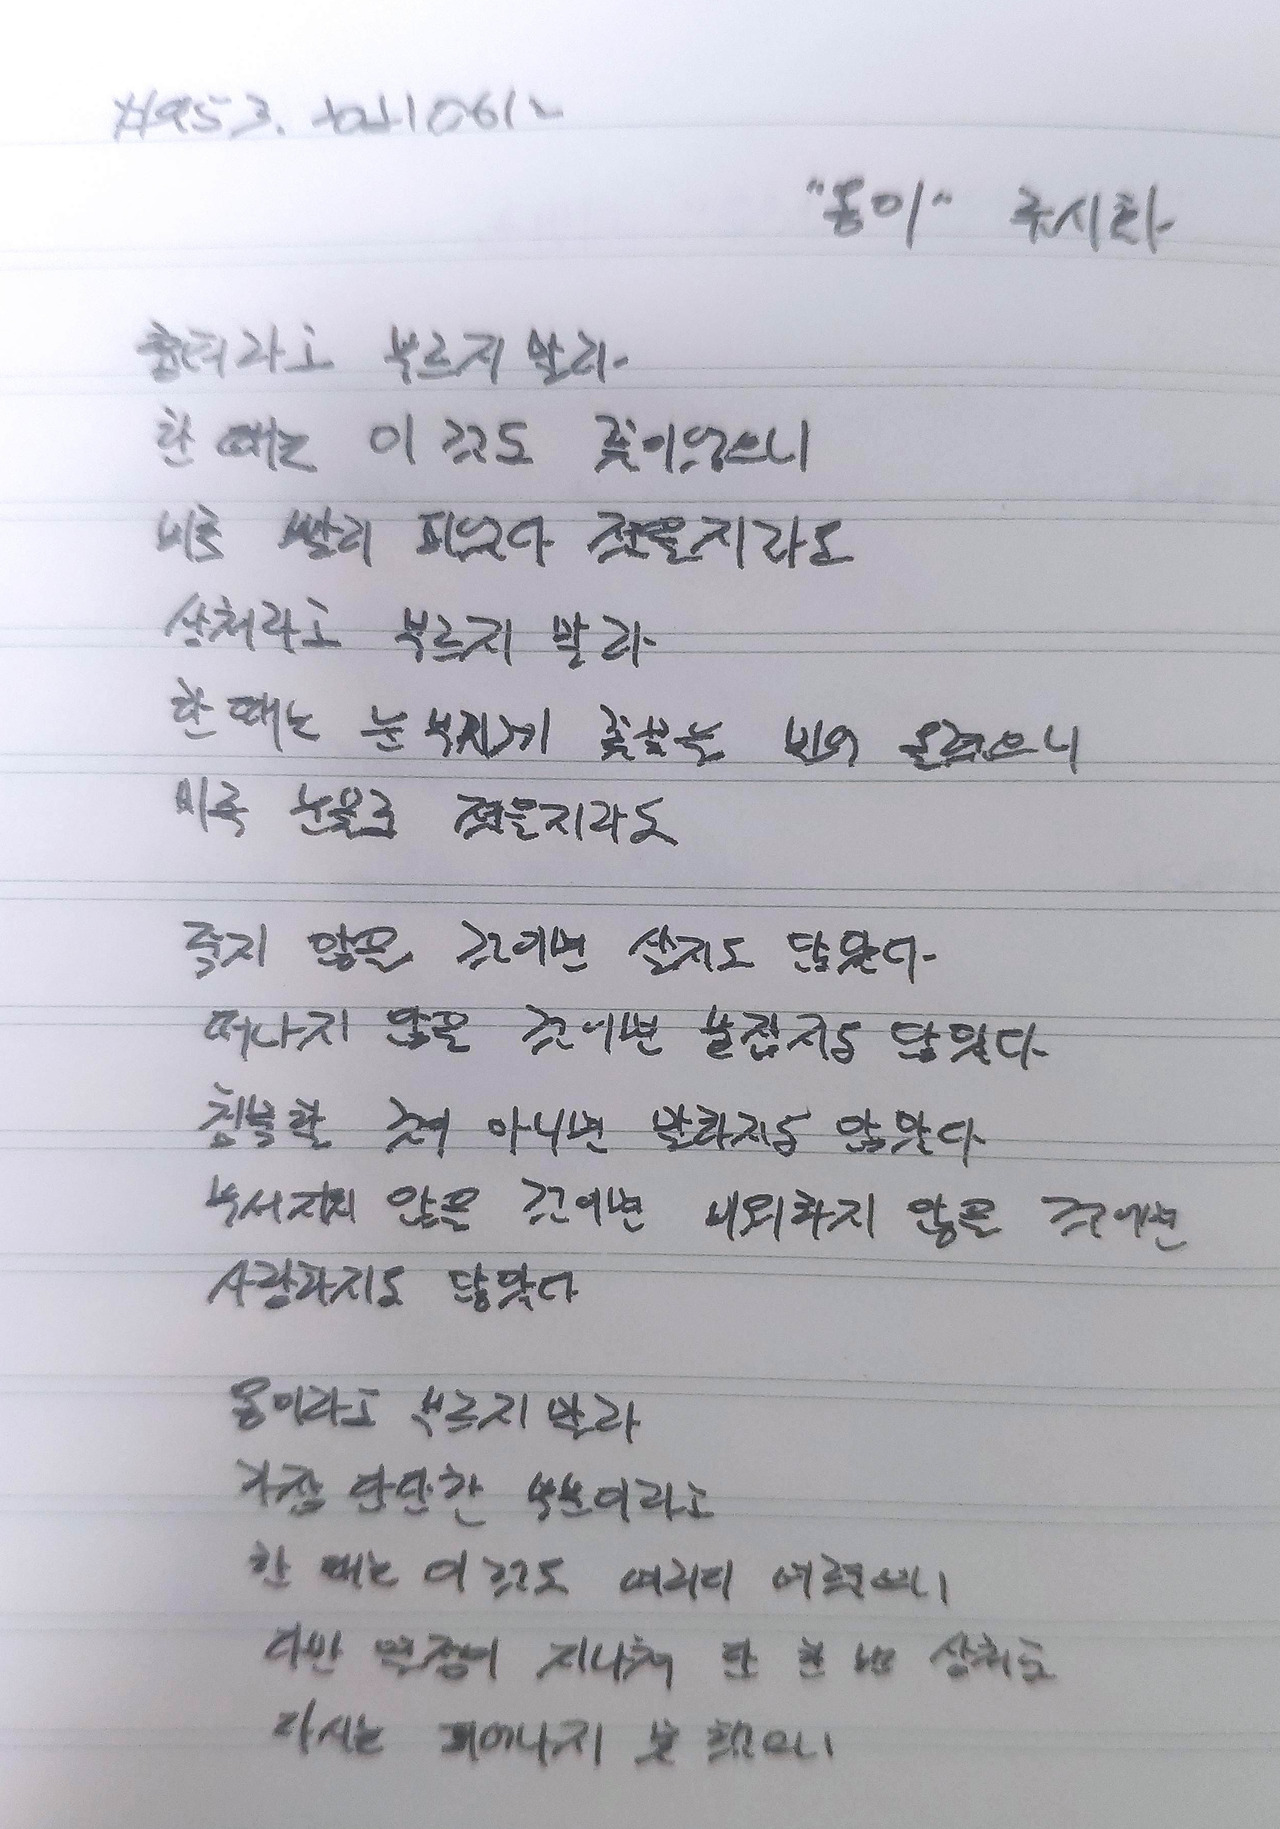 #953.
"옹이" 류시화
흉터라고 부르지 말라
한 때는 이것도 꽃이었으니
비록 빨리 피었다 졌을지라도
상처라고 부르지 말라
한 때는 눈부시게 꽃물을 밀어 올렸으니
비록 눈물로 졌을지라도
죽지 않을 것이면 살지도 않았다
떠나지 않을 것이면 붙잡지도 않았다
침묵할 것이 아니면 말하지도 않았다
부서지지 않을 것이면 미워하지 않을 것이면
사랑하지도 않았다
옹이라고 부르지 말라
가장 단단한 부분이라고
한 때는 이것도 여리디 여렸으니
다만 열정이 지나쳐 단 한 번 상처로
다시는 피어나지 못했으니